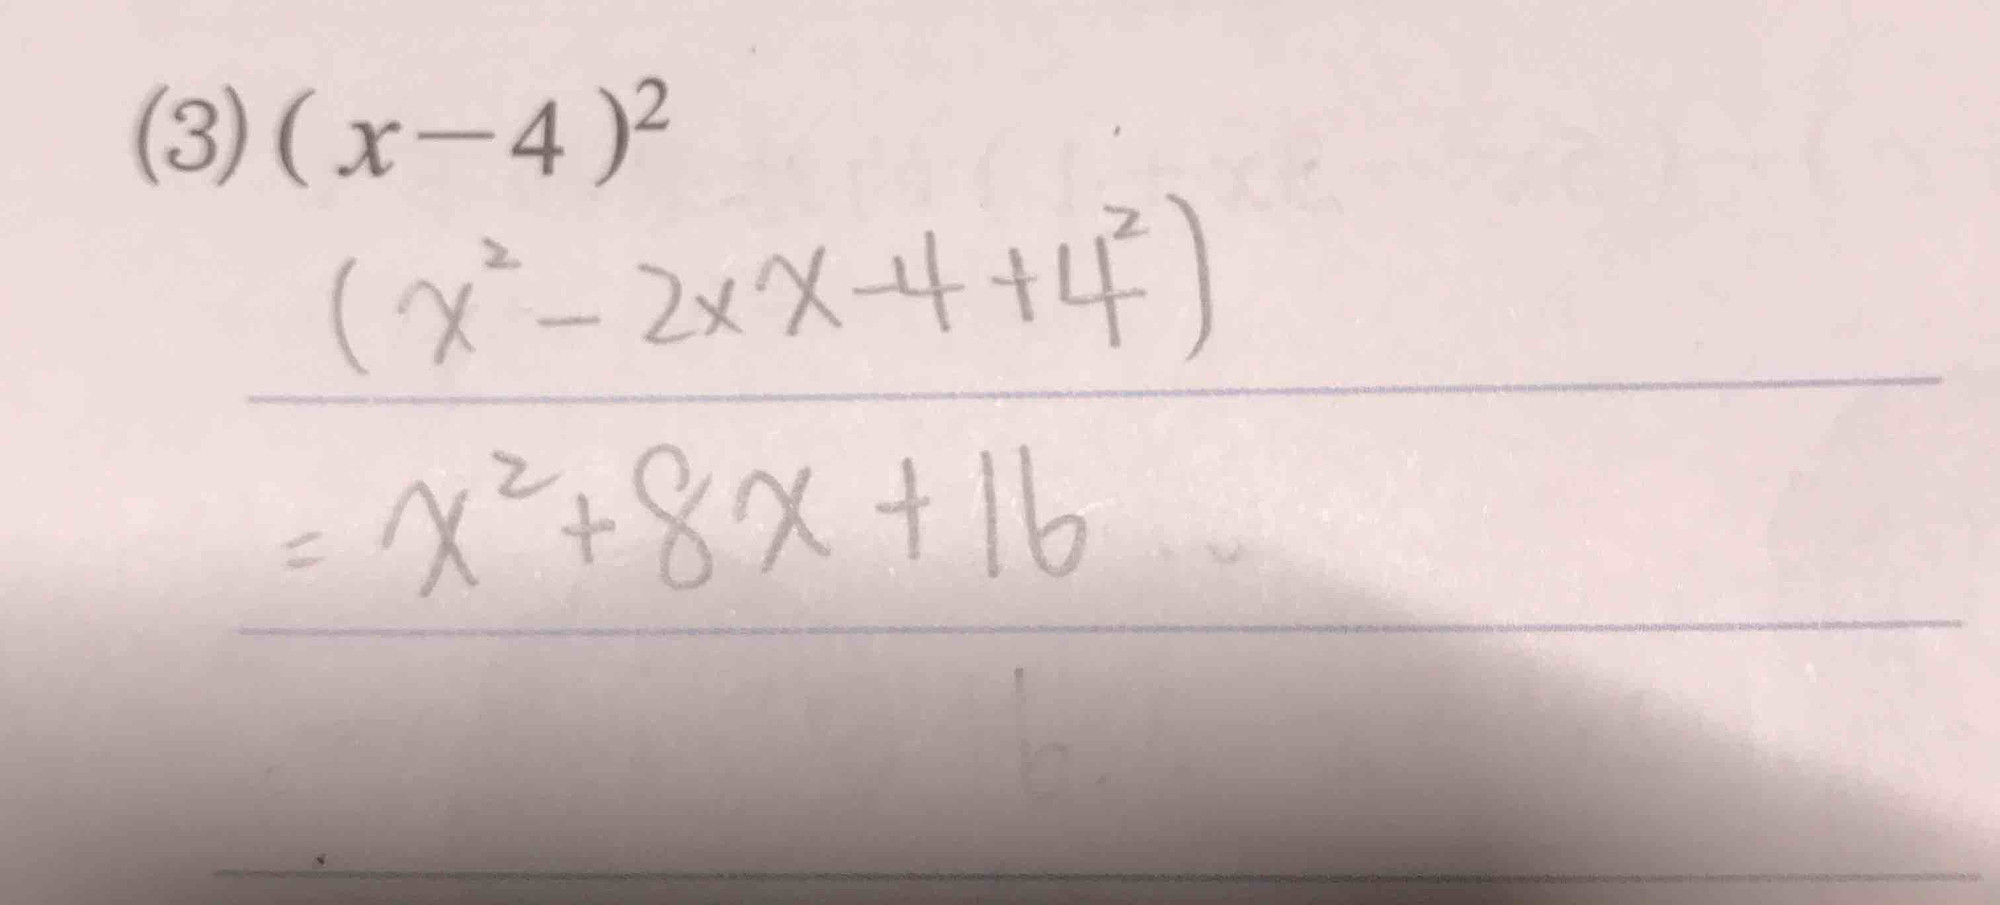 (3) (x−4)²
(x² − 2×x−4+4²)
= x²+8x+16